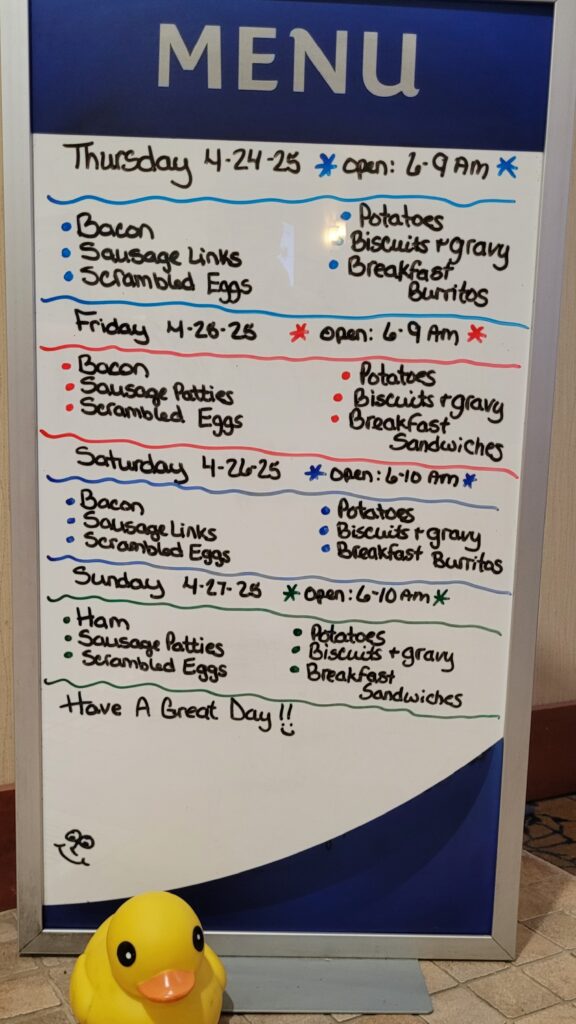 MENU
Thursday 4-24-25 * Open: 6-9 Am *
• Bacon
• Sausage Links
• Scrambled Eggs
• Potatoes
• Biscuits + gravy
• Breakfast
Burritos
Friday 4-25-25 * Open: 6-9 Am *
• Bacon
• Sausage Patties
• Scrambled Eggs
• Potatoes
• Biscuits + gravy
• Breakfast
Sandwiches
Saturday 4-26-25 * Open: 6-10 Am *
• Bacon
• Sausage Links
• Scrambled Eggs
• Potatoes
• Biscuits + gravy
• Breakfast Burritos
Sunday 4-27-25 * Open: 6-10 Am *
• Ham
• Sausage Patties
• Scrambled Eggs
• Potatoes
• Biscuits + gravy
• Breakfast
Sandwiches
Have A Great Day !!